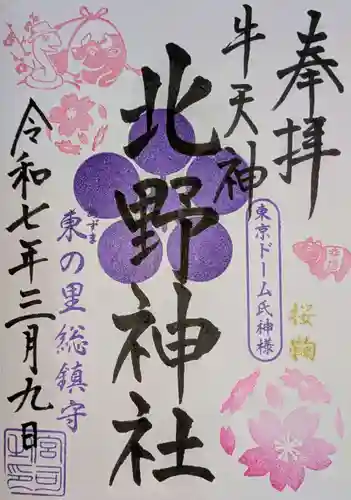 奉拝
牛天神
北野神社
東京ドーム氏神様
桜鞠
あずま
東の里総鎮守
令和七年三月九日